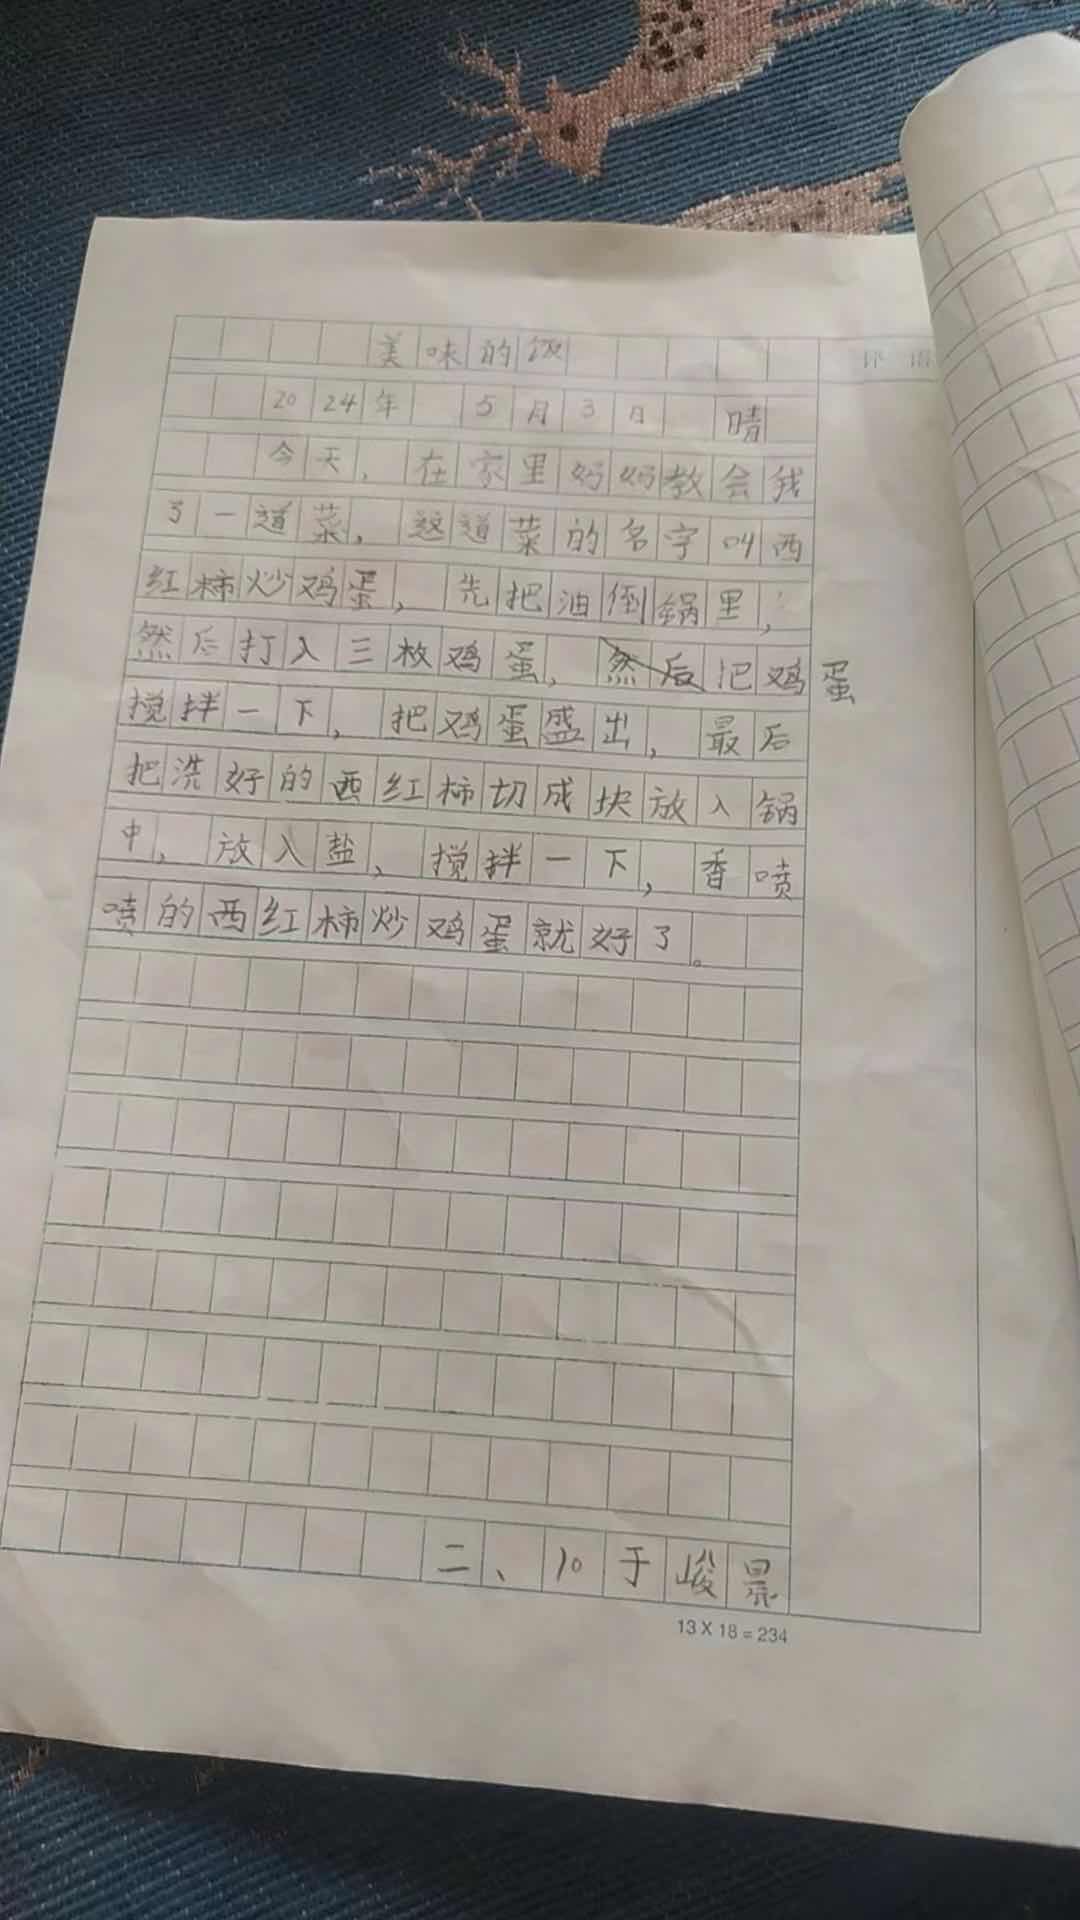 美味的饭
评语
2024年 5月3日 晴
今天，在家里妈妈教会我
了一道菜，这道菜的名字叫西
红柿炒鸡蛋，先把油倒锅里，
然后打入三枚鸡蛋，然后把鸡蛋
搅拌一下，把鸡蛋盛出，最后
把洗好的西红柿切成块放入锅
中，放入盐，搅拌一下，香喷
喷的西红柿炒鸡蛋就好了。
二、10于峻晨
13 X 18 = 234